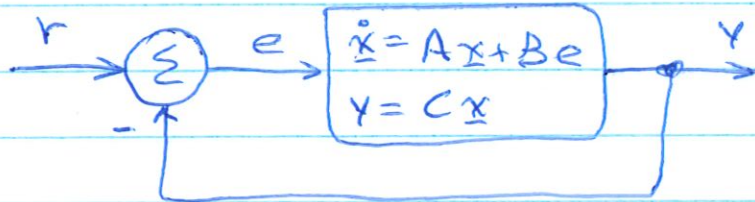 r
Σ
e
ẋ = Ax + Be
y = Cx
y
-